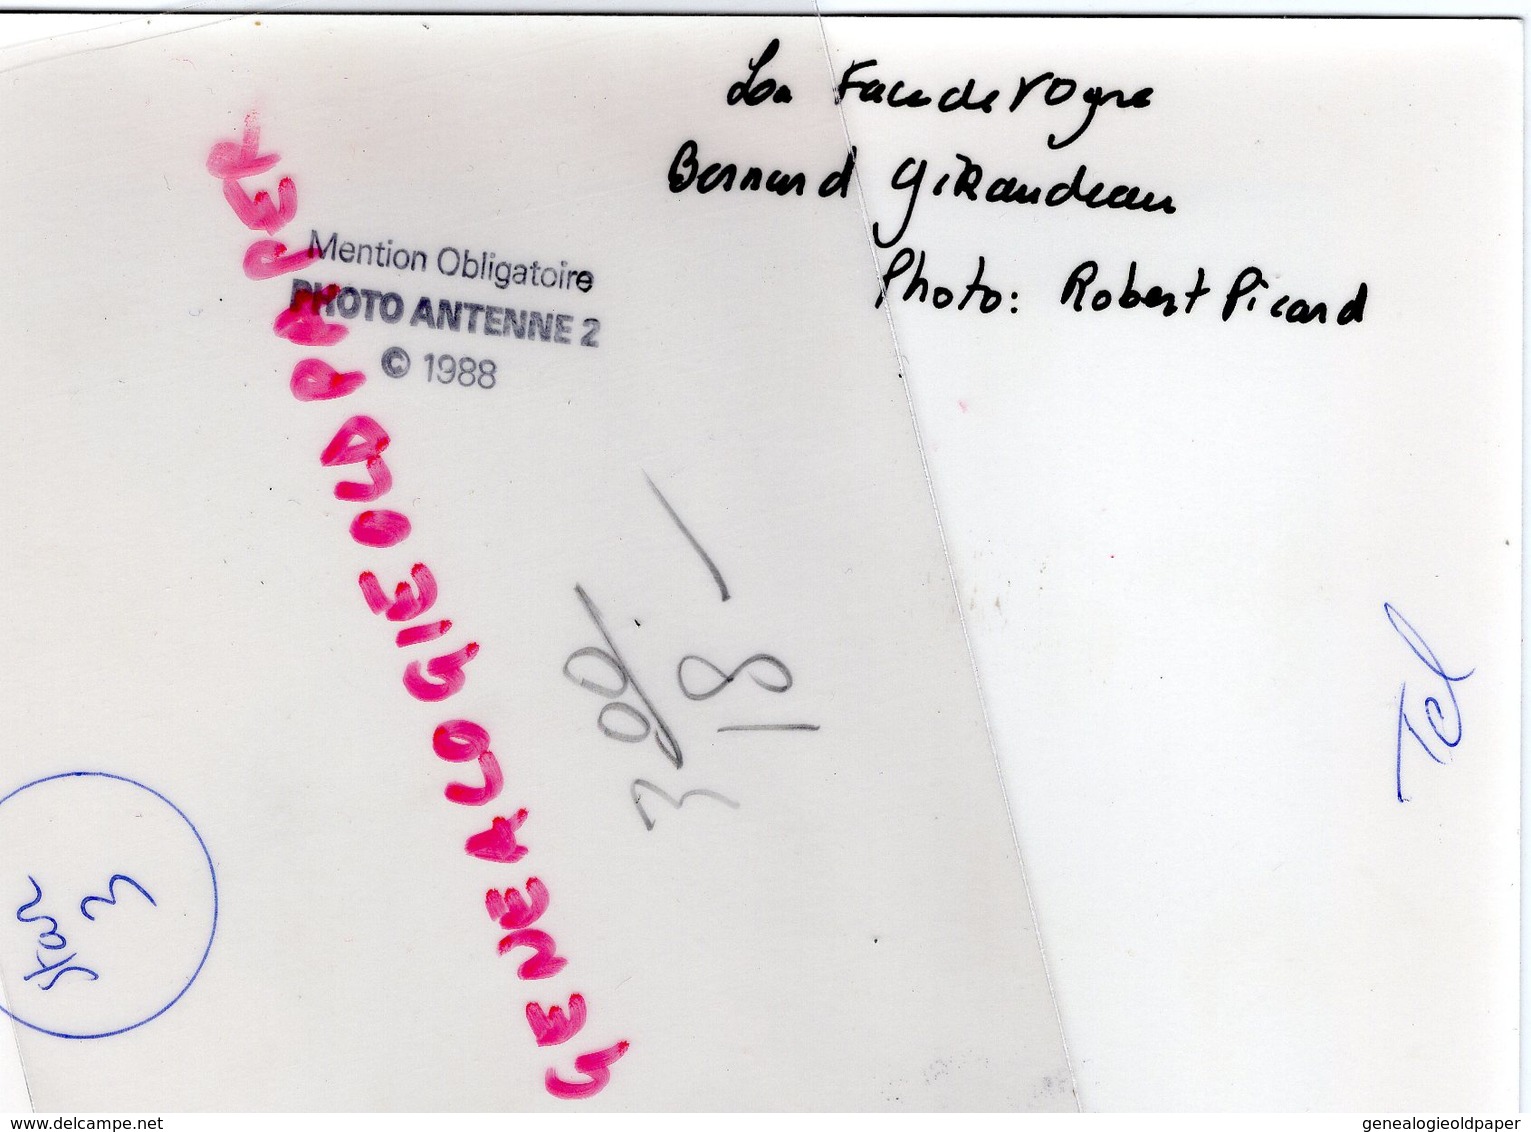 La Face de l'Ogre
Bernard GiRaudeau
Photo: Robert Picard
Mention Obligatoire
PHOTO ANTENNE 2
© 1988
GENEALOGIEOLDPAPER
18
Tel
Star
3
www.delcampe.net
genealogieoldpaper